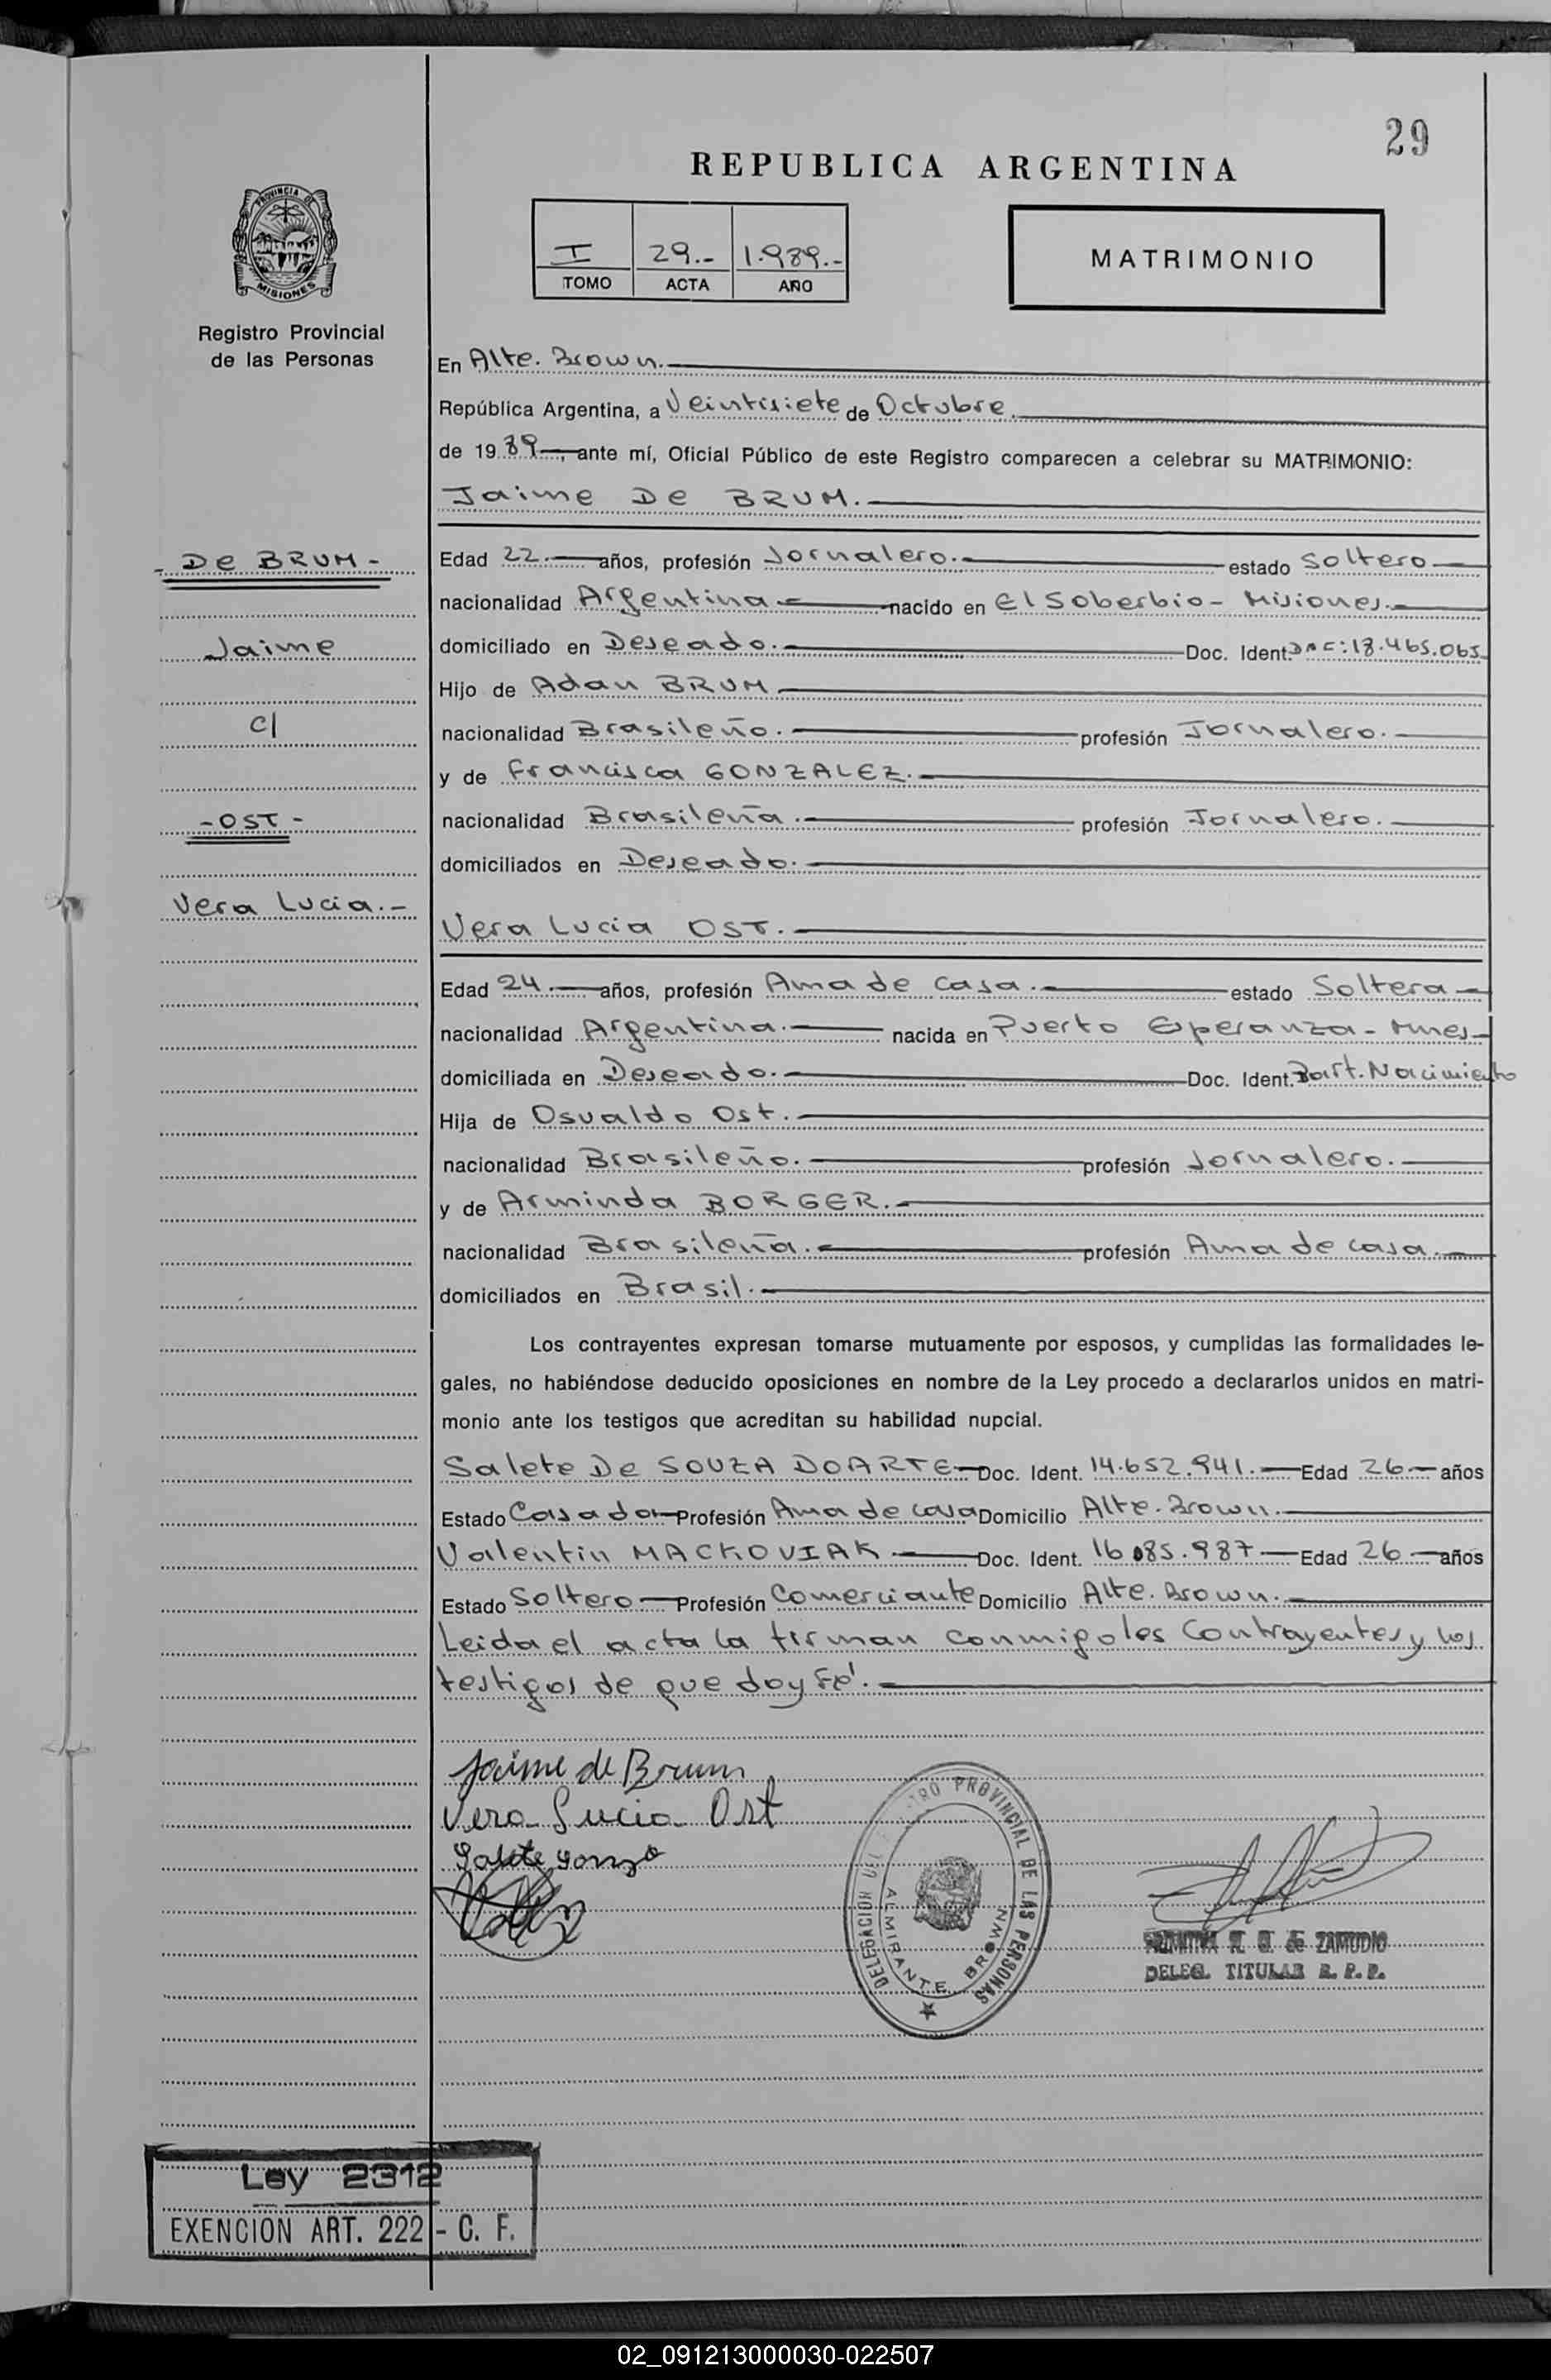 29
REPUBLICA ARGENTINA
PROVINCIA DE
MISIONES
I 29.- 1.989.-
TOMO ACTA AÑO
MATRIMONIO
Registro Provincial
de las Personas
En Alte. Brown.
República Argentina, a Veintisiete de Octubre.
de 19 89 , ante mí, Oficial Público de este Registro comparecen a celebrar su MATRIMONIO:
Jaime De BRUM.
- De BRUM -
Jaime
c/
- OST -
Vera Lucia.-
Edad 22.- años, profesión Jornalero. estado Soltero
nacionalidad Argentina nacido en El Soberbio - Misiones.
domiciliado en Deseado. Doc. Ident. 18.465.065
Hijo de Adan BRUM
nacionalidad Brasileño. profesión Jornalero.
y de Francisca GONZALEZ.
nacionalidad Brasileña. profesión Jornalero.
domiciliados en Deseado.
Vera Lucia OST.
Edad 24.- años, profesión Ama de casa. estado Soltera
nacionalidad Argentina. nacida en Puerto Esperanza - Mnes
domiciliada en Deseado. Doc. Ident. Part. Nacimiento
Hija de Osvaldo Ost.
nacionalidad Brasileño. profesión Jornalero.
y de Arminda BORGER.
nacionalidad Brasileña. profesión Ama de casa.
domiciliados en Brasil.
Los contrayentes expresan tomarse mutuamente por esposos, y cumplidas las formalidades le-
gales, no habiéndose deducido oposiciones en nombre de la Ley procedo a declararlos unidos en matri-
monio ante los testigos que acreditan su habilidad nupcial.
Salete De SOUZA DOARTE Doc. Ident. 14.652.941. Edad 26 años
Estado Casada Profesión Ama de casa Domicilio Alte. Brown.
Valentin MACKOVIAK Doc. Ident. 16.085.987 Edad 26 años
Estado Soltero Profesión Comerciante Domicilio Alte. Brown.
Leida el acta la firman conmigo los Contrayentes y los
testigos de que doy Fé.
Jaime de Brum
Vera Lucia Ost
Salete
DELEGACION DEL REGISTRO PROVINCIAL DE LAS PERSONAS
ALMIRANTE BROWN
de ZAMUDIO
DELEG. TITULAR R. P. P.
Ley 2312
EXENCION ART. 222 - C. F.
02_091213000030-022507